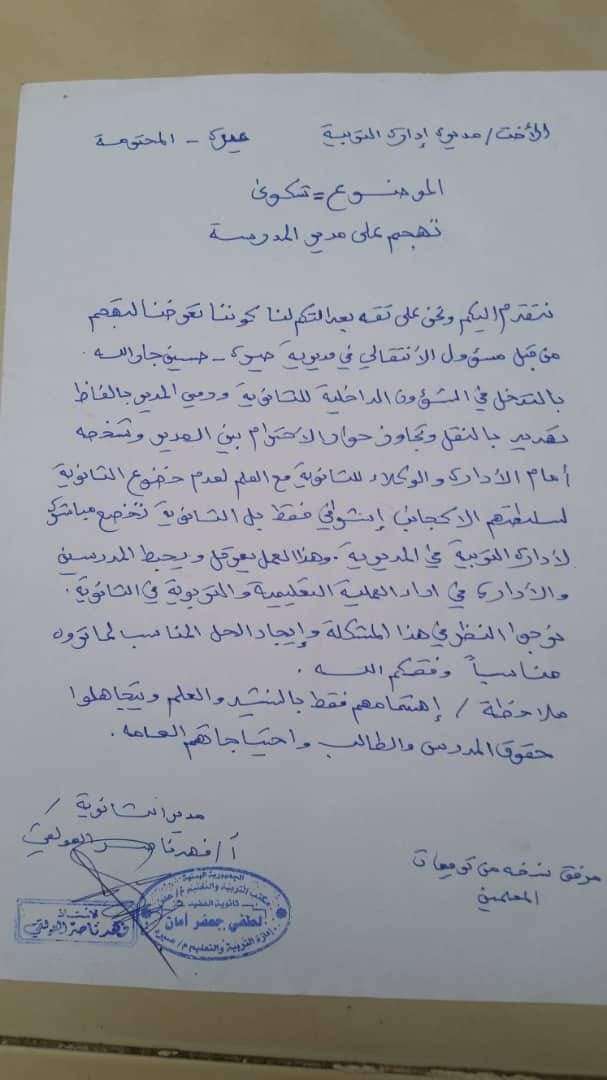 الأخت/ مديرة إدارة التربية صيرة - المحترمة
الموضوع = شكوى
تهجم على مدير المدرسة
نتقدم اليكم ونحن على ثقه بعدالتكم لنا كوننا تعرضنا لتهجم
من قبل مسؤول الأنتقالي في مديرية صيرة - حسين جاب الله.
بالتدخل في الشؤون الداخلية للثانوية ورمي المدير بالفاظ
تهديد بالنقل وتجاوز حوار الاحترام بين المدير وشخصه
أمام الأدارة والوكلاء للثانوية مع العلم لعدم خضوع الثانوية
لسلطتهم إشرافي فقط بل الثانوية تخضع مباشرة
لأدارة التربية في المديرية. وهذا العمل يعرقل ويحبط المدرسين
والأدارة في اداء العملية التعليمية والتربوية في الثانوية.
نرجوا النظر في هذا المشكلة وإيجاد الحل المناسب لما تروه
مناسباً وفقكم الله.
ملاحظة / إهتمامهم فقط بالنشيد والعلم ويتجاهلوا
حقوق المدرس والطالب واحتياجاتهم العامه.
مدير الثانوية /
أ/ فهد ناصر العولقي
مرفق نسخه من توقيعات
المعلمين
الجمهورية اليمنية
مكتب التربية والتعليم م/عدن
ثانوية الفقيد
لطفي جعفر أمان
إدارة التربية والتعليم م/ صيرة
الأستاذ
فهد ناصر العولقي